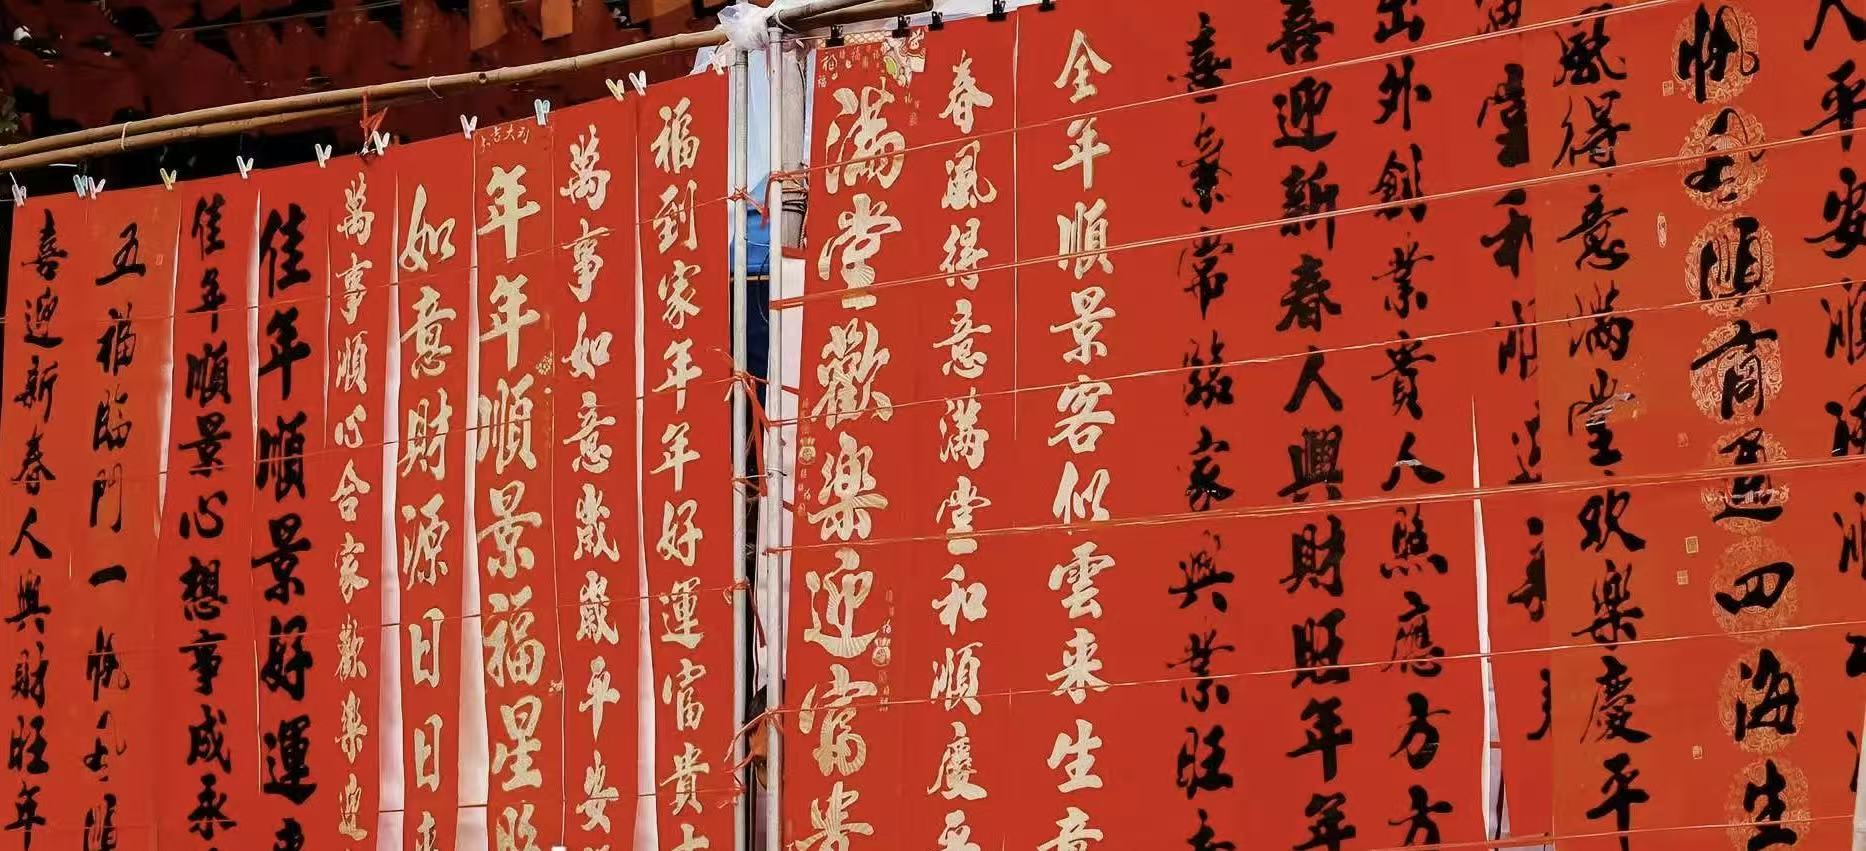 喜迎新春人興財旺年
五福臨門一帆風順
佳年順景心想事成永
佳年順景好運來
萬事順心合家歡樂迎
如意財源日日來
大吉大利
年年順景福星照
萬事如意歲歲平安
福到家年年好運富貴
福
滿堂歡樂迎富貴
春風得意滿堂和順慶平
全年順景客似雲来生意
喜氣常臨家興業旺
喜迎新春人興財旺年年
出外創業貴人照應方方
堂和順
風得意满堂欢樂慶平
帆風順商通四海生
人平安順